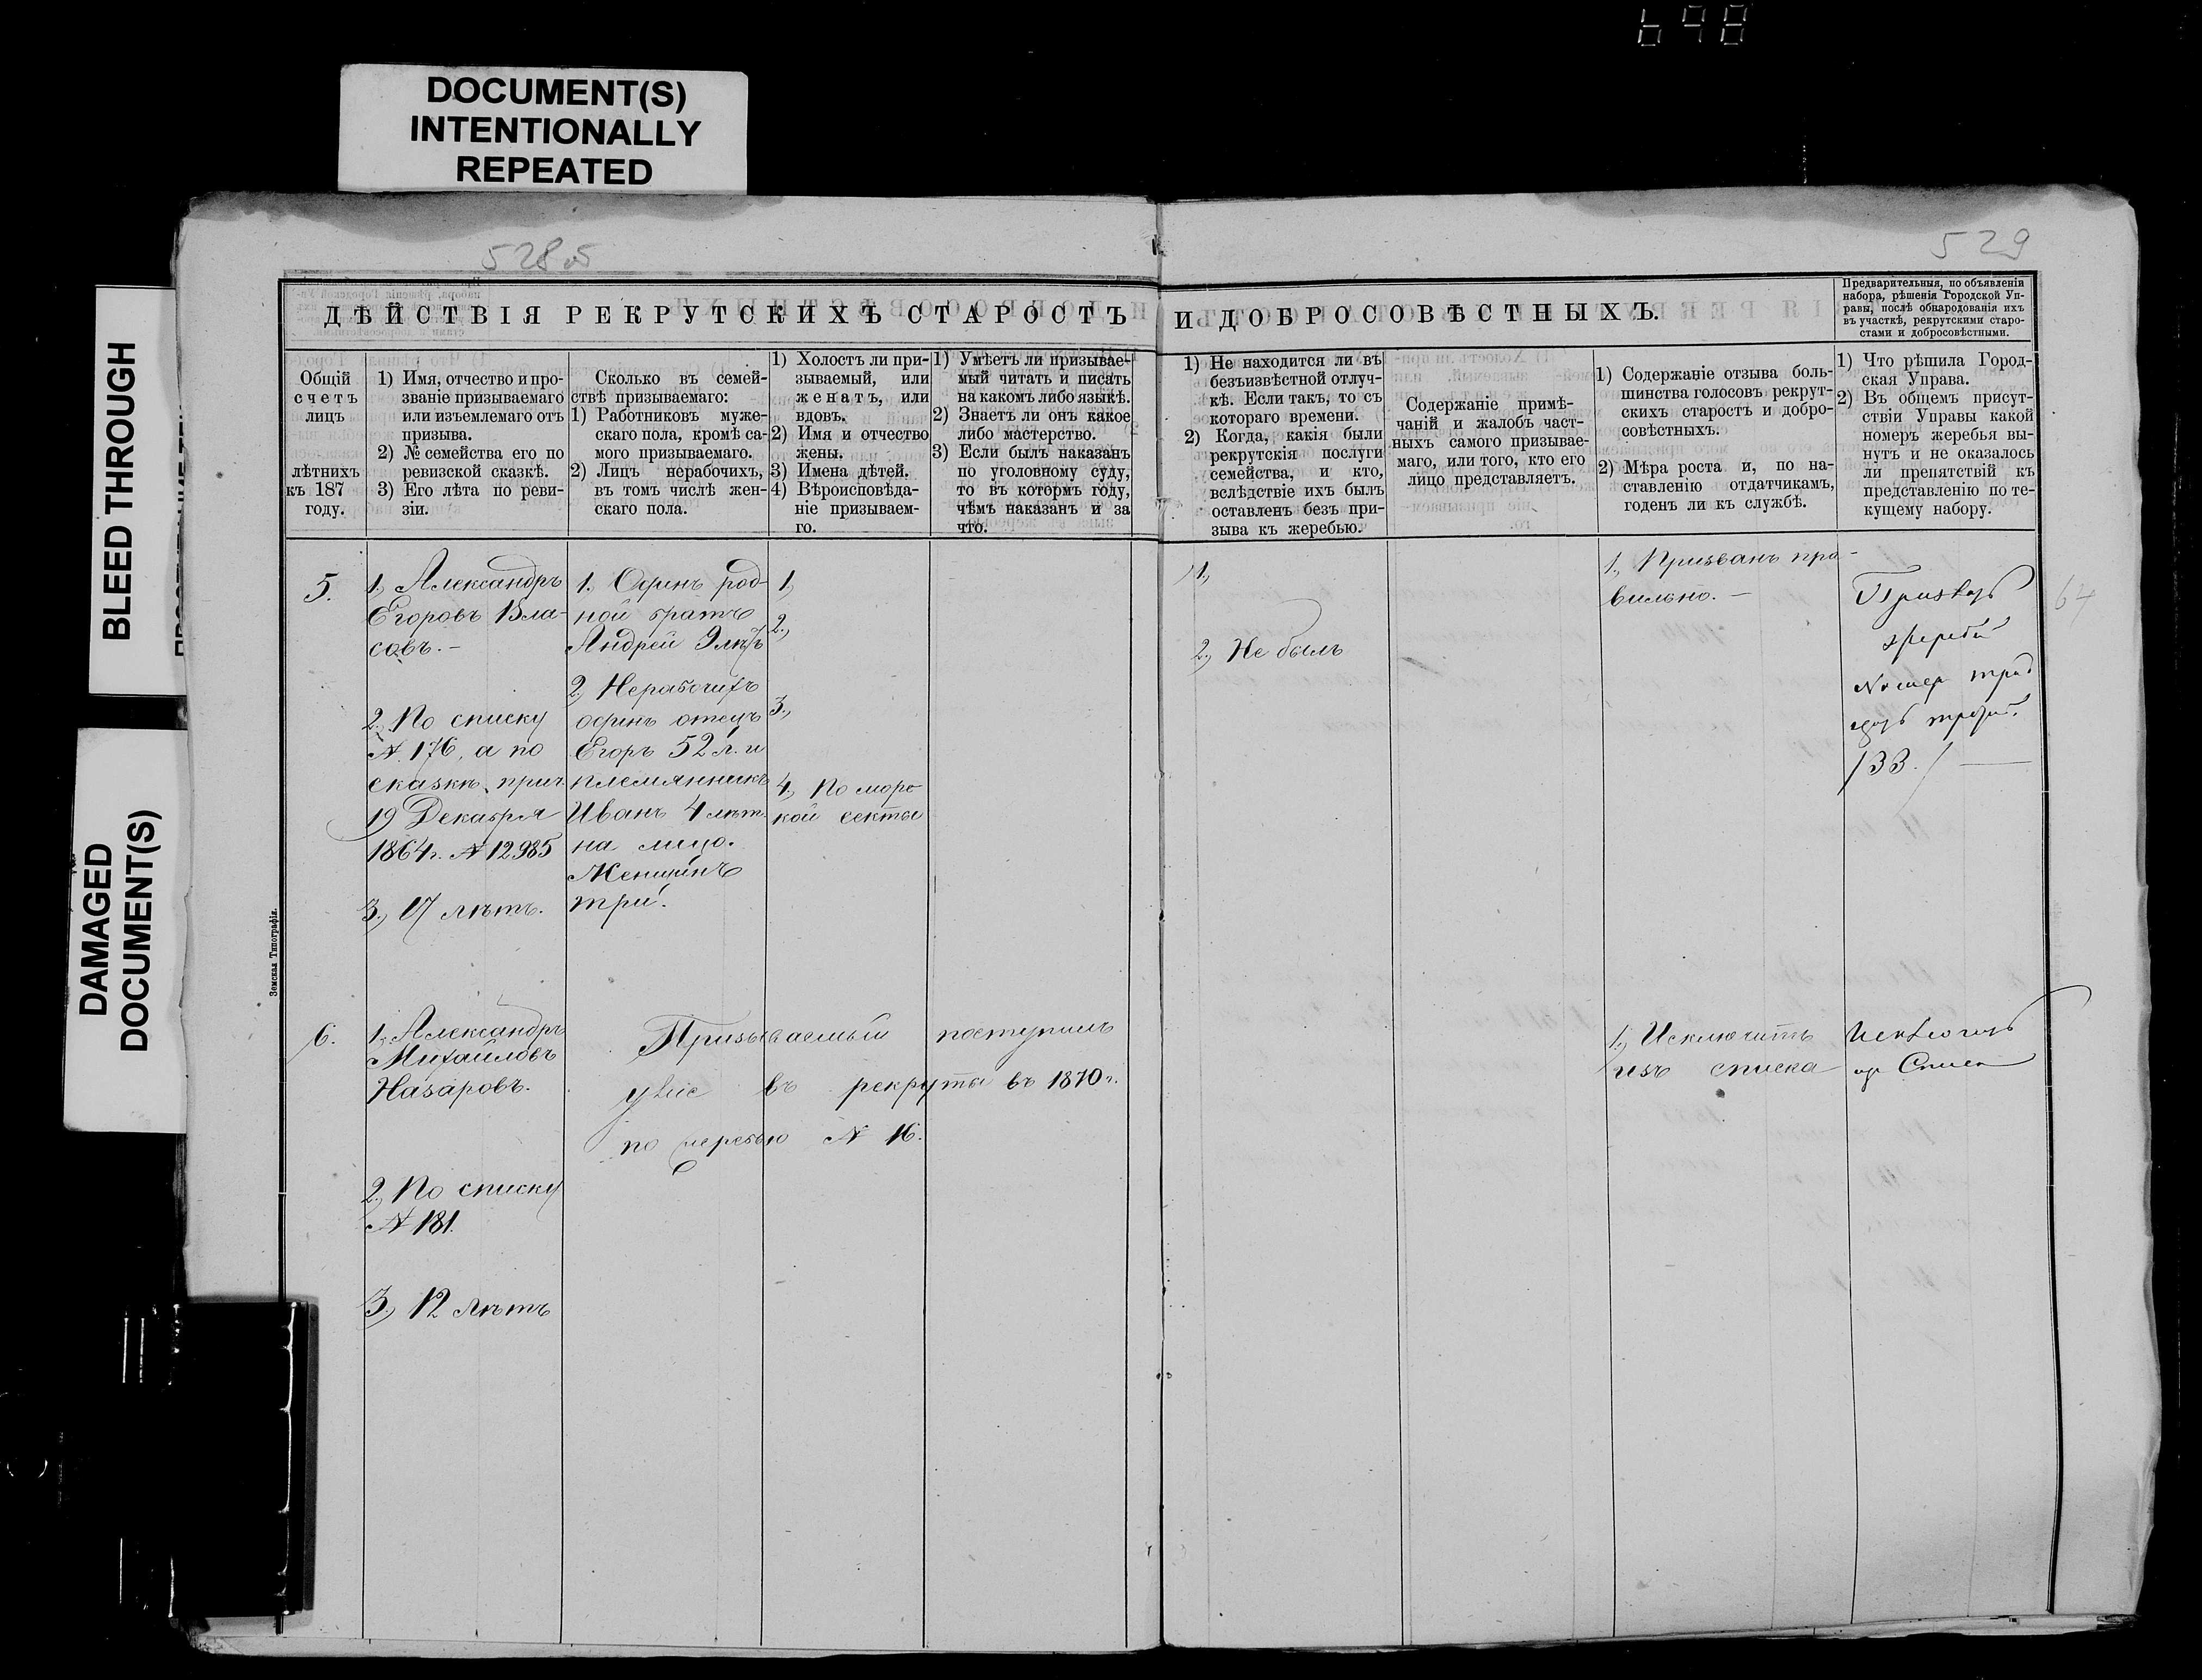 648
DOCUMENT(S)
INTENTIONALLY
REPEATED
BLEED THROUGH
DAMAGED
DOCUMENT(S)
528об
529
ДѢЙСТВІЯ РЕКРУТСКИХЪ СТАРОСТЪ
И ДОБРОСОВѢСТНЫХЪ.
Предварительныя, по объявленіи
набора, рѣшенія Городской Уп-
равы, послѣ обнародованія ихъ
въ участкѣ, рекрутскими старо-
стами и добросовѣстными.
Общій
счетъ
лицъ
лѣтнихъ
къ 187
году.
1) Имя, отчество и про-
званіе призываемаго
или изъемлемаго отъ
призыва.
2) № семейства его по
ревизской сказкѣ.
3) Его лѣта по реви-
зіи.
Сколько въ семей-
ствѣ призываемаго:
1) Работниковъ муже-
скаго пола, кромѣ са-
мого призываемаго.
2) Лицъ нерабочихъ,
въ томъ числѣ жен-
скаго пола.
1) Холостъ ли при-
зываемый, или
женатъ, или
вдовъ.
2) Имя и отчество
жены.
3) Имена дѣтей.
4) Вѣроисповѣда-
ніе призываем-
го.
1) Умѣетъ ли призывае-
мый читать и писать
на какомъ либо языкѣ.
2) Знаетъ ли онъ какое
либо мастерство.
3) Если былъ наказанъ
по уголовному суду,
то въ котормъ году,
чѣмъ наказанъ и за
что.
1) Не находится ли въ
безъизвѣстной отлуч-
кѣ. Если такъ, то съ
котораго времени.
2) Когда, какія были
рекрутскія послуги
семейства, и кто,
вслѣдствіе ихъ былъ
оставленъ безъ при-
зыва къ жеребью.
Содержаніе примѣ-
чаній и жалобъ част-
ныхъ самого призывае-
маго, или того, кто его
лицо представляетъ.
1) Содержаніе отзыва боль-
шинства голосовъ рекрут-
скихъ старостъ и добро-
совѣстныхъ.
2) Мѣра роста и, по на-
ставленію отдатчикамъ,
годенъ ли къ службѣ.
1) Что рѣшила Город-
ская Управа.
2) Въ общемъ присут-
ствіи Управы какой
номеръ жеребья вы-
нутъ и не оказалось
ли препятствій къ
представленію по те-
кущему набору.
5.
1., Александръ
Егоровъ Вла-
совъ. —
2., По списку
№ 176, а по
сказкѣ, прич.
19 Декабря
1864 г. № 12985
3., 17 лѣтъ.
1. Одинъ род-
ной братъ
Андрей
2., Нерабочихъ
одинъ отецъ
Егоръ 52 л. и
племянникъ
Иванъ 4 лѣт.
на лицо.
Женщинъ
три.
1.,
2.,
3.,
4., Помор-
кой секты
1.,
2., Не былъ
1., Призванъ пра-
вильно. —
Призвать
жребій
Номер трид
цать третій.
/33./ —
64
6.
1., Александръ
Михайловъ
Назаровъ.
2., По списку
№ 181.
3., 12 лѣтъ
Призываемый поступилъ
уже въ рекруты въ 1870 г.
по жеребью № 16.
1., Исключить
изъ списка
Исключить
из Списк
Земская Типографія.